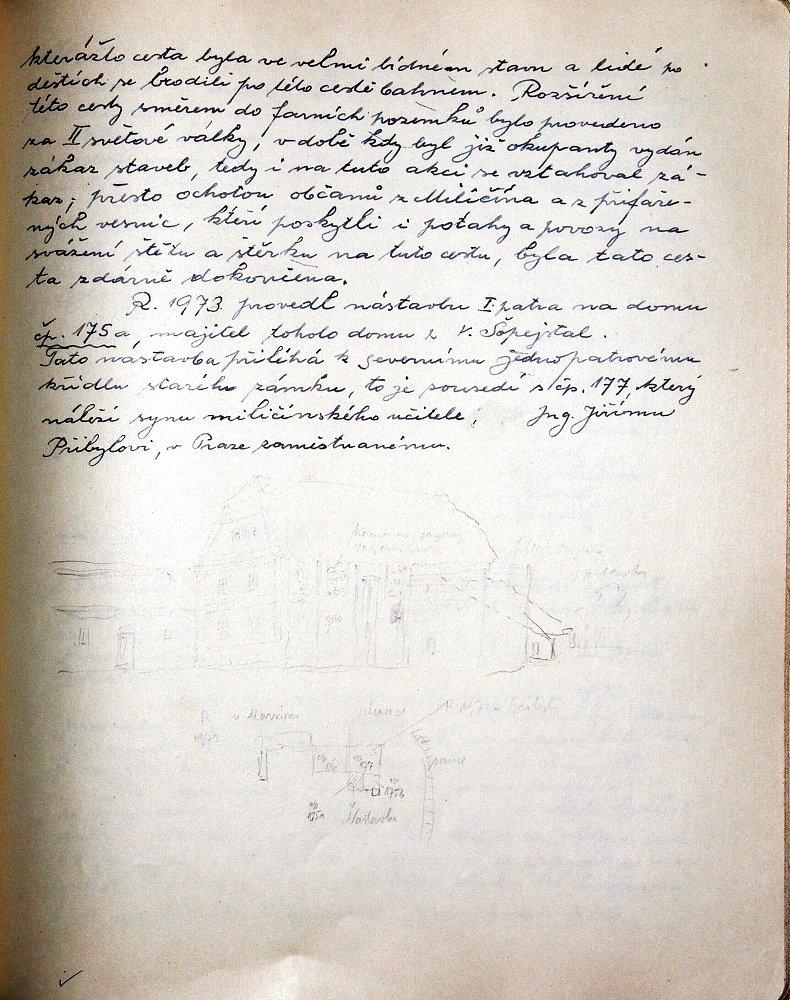 kterážto cesta byla ve velmi bídném stavu a lidé po
deštích se brodili po této cestě bahnem. Rozšíření
této cesty směrem do farních pozemků bylo provedeno
za II světové války, v době kdy byl již okupanty vydán
zákaz staveb, tedy i na tuto akci se vztahoval zá-
kaz; přesto ochotou občanů z Miličína a z přifaře-
ných vesnic, kteří poskytli i potahy a povozy na
svážení štětu a štěrku na tuto cestu, byla tato ces-
ta zdárně dokončena.
R. 1973 provedl nástavbu I. patra na domu
čp. 175a, majitel tohoto domu p. V. Špejstal.
Tato nástavba přiléhá k severnímu jednopatrovému
křídlu starého zámku, to je sousedí s čp. 177, který
náleží synu miličínského učitele; Ing. Jiřímu
Přibylovi, v Praze zaměstnanému.
1972
čp 176
čp 177
čp 175b
čp 175a
Nástavba